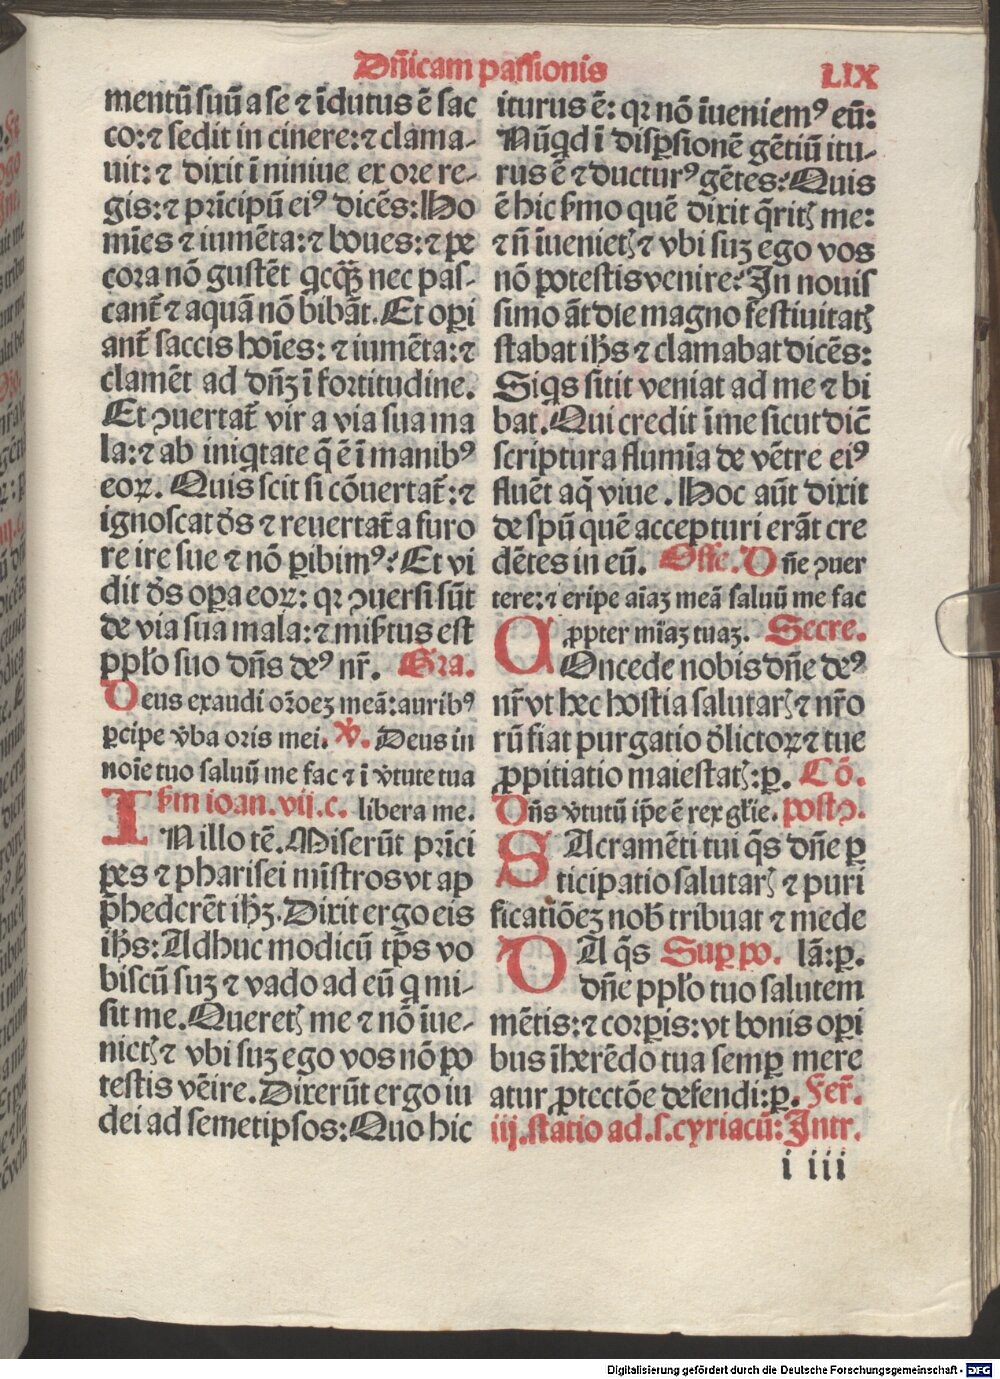 Dñicam passionis
LIX
mentū suū a se ⁊ īdutus ē sac
co:⁊ sedit in cinere:⁊ clama-
uit: ⁊ dixit ī niniue ex ore re-
gis:⁊ prīcipū eiꝰ dicēs:Ho
mīes ⁊ iumēta:⁊ boues:⁊ pe
cora nō gustēt qcꝙ̄ nec pas-
cant̄ ⁊ aquā nō bibāt. Et oꝑi
ant̄ saccis hoīes: ⁊ iumēta:⁊
clamēt ad dn̄ꝫ ī fortitudine.
Et ꝯuertat̄ vir a via sua ma
la:⁊ ab iniqtate q̄ ē ī manibꝰ
eoꝝ. Quis scit si cōuertat̄:⁊
ignoscat d̄s ⁊ reuertat̄ a furo
re ire sue ⁊ nō ꝑibimꝰ? Et vi
dit d̄s oꝑa eoꝝ: qꝛ ꝯuersi sūt
de via sua mala:⁊ mis̄tus est
pplo̵ suo dn̄s deꝰ nr̄. Gra.
Deus exaudi or̄oeꝫ meā:auribꝰ
ꝑcipe v̄ba oris mei. ꝟ. Deus in
noīe tuo saluū me fac ⁊ ī v̄tute tua
s̄m ioan. vij. c. libera me.
IN illo tē. Miserūt prīci
pes ⁊ pharisei mīstros vt ap
p̄hedcrēt ih̄ꝫ. Dixit ergo eis
ih̄s: Adhuc modicū tp̄s vo
biscū suꝫ ⁊ vado ad eū q mi-
sit me. Queretꝭ me ⁊ nō īue-
nietꝭ ⁊ vbi suꝫ ego vos nō po
testis vēire. Dixerūt ergo iu
dei ad semetipsos: Quo hic
iturus ē: qꝛ nō īueniemꝰ eū:
Nūqd ī disꝑsionē gētiū itu-
rus ē ⁊ docturꝰ gētes? Quis
ē hic s̄mo quē dixit q̄ritꝭ me:
⁊ n̄ īuenietꝭ ⁊ vbi suꝫ ego vos
nō potestis venire? In nouis
simo āt die magno festiuitatꝭ
stabat ih̄s ⁊ clamabat dicēs:
Siqs sitit veniat ad me ⁊ bi
bat. Qui credit ī me sicut dic̄
scriptura flumīa de vētre eiꝰ
fluēt aq̄ viue. Hoc aūt dixit
de spū quē accepturi erāt cre
dētes in eū. Offe. Dn̄e ꝯuer
tere:⁊ eripe aīaꝫ meā saluū me fac
ꝓpter mīaꝫ tuaꝫ. Secre.
COncede nobis dn̄e deꝰ
nr̄ vt hec hostia salutarꝭ ⁊ nr̄o
rū fiat purgatio d̄lictoꝝ ⁊ tue
ꝓpitiatio maiestatꝭ:ꝑ. Cō.
Dn̄s v̄tutū ip̄e ē rex gl̄ie. postꝯ.
SAcramēti tui q̄s dn̄e ꝑ
ticipatio salutarꝭ ⁊ puri
ficatiōeꝫ nob̄ tribuat ⁊ mede
DA q̄s Suꝑ po. lā:ꝑ.
dn̄e pplo̵ tuo salutem
mētis:⁊ corꝑis:vt bonis oꝑi
bus īherēdo tua semꝑ mere
atur ꝓtectōe defendi:ꝑ. Fer̄.
iij. statio ad. s. cyriacū: Intr.
i iii
Digitalisierung gefördert durch die Deutsche Forschungsgemeinschaft - DFG